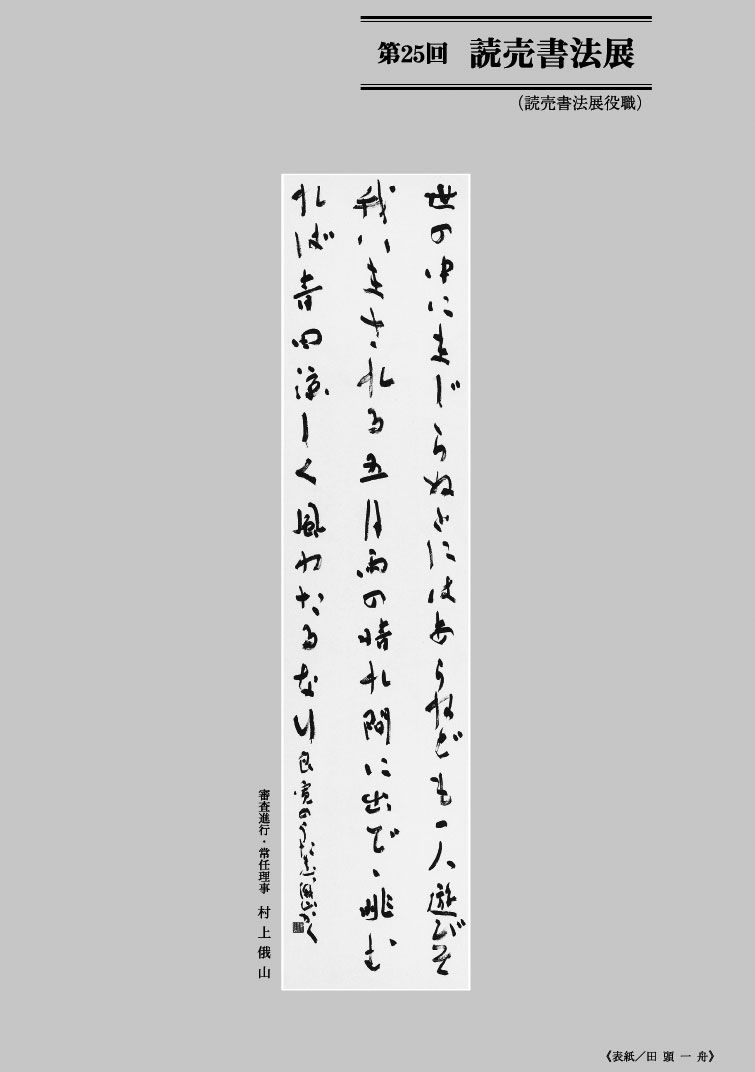 第25回 読売書法展
（読売書法展役職）
世の中にまじらぬとにはあらねども一人遊びぞ
我はまされる五月雨の晴れ間に出でゝ眺む
れば青田涼しく風わたるなり良寛のうた二首俄山かく
審査進行・常任理事 村上俄山
《表紙／田頭一舟》